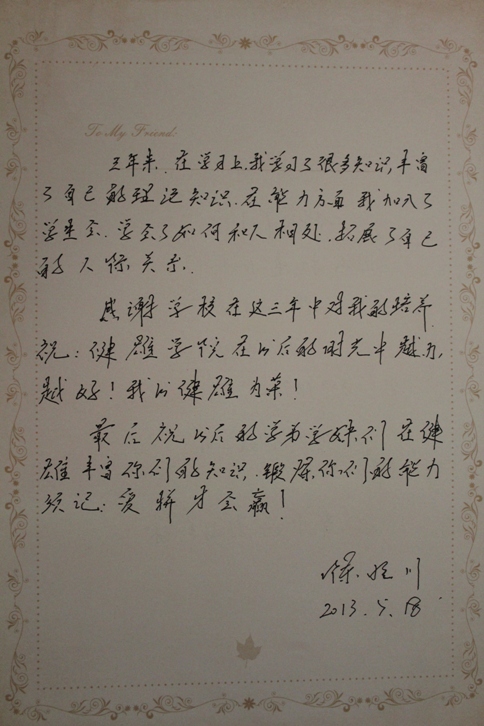 To My Friend:
三年来,在学习上,我学习了很多知识,丰富
了自己的理论知识.在能力方面我加入了
学生会.学会了如何和人相处.拓展了自己
的人际关系.
感谢学校在这三年中对我的培养
祝:健雄学院在以后的时光中越办
越好!我以健雄为荣!
最后祝以后的学弟学妹们在健
雄丰富你们的知识.锻炼你们的能力
须记:爱拼才会赢!
川
2013.5.18